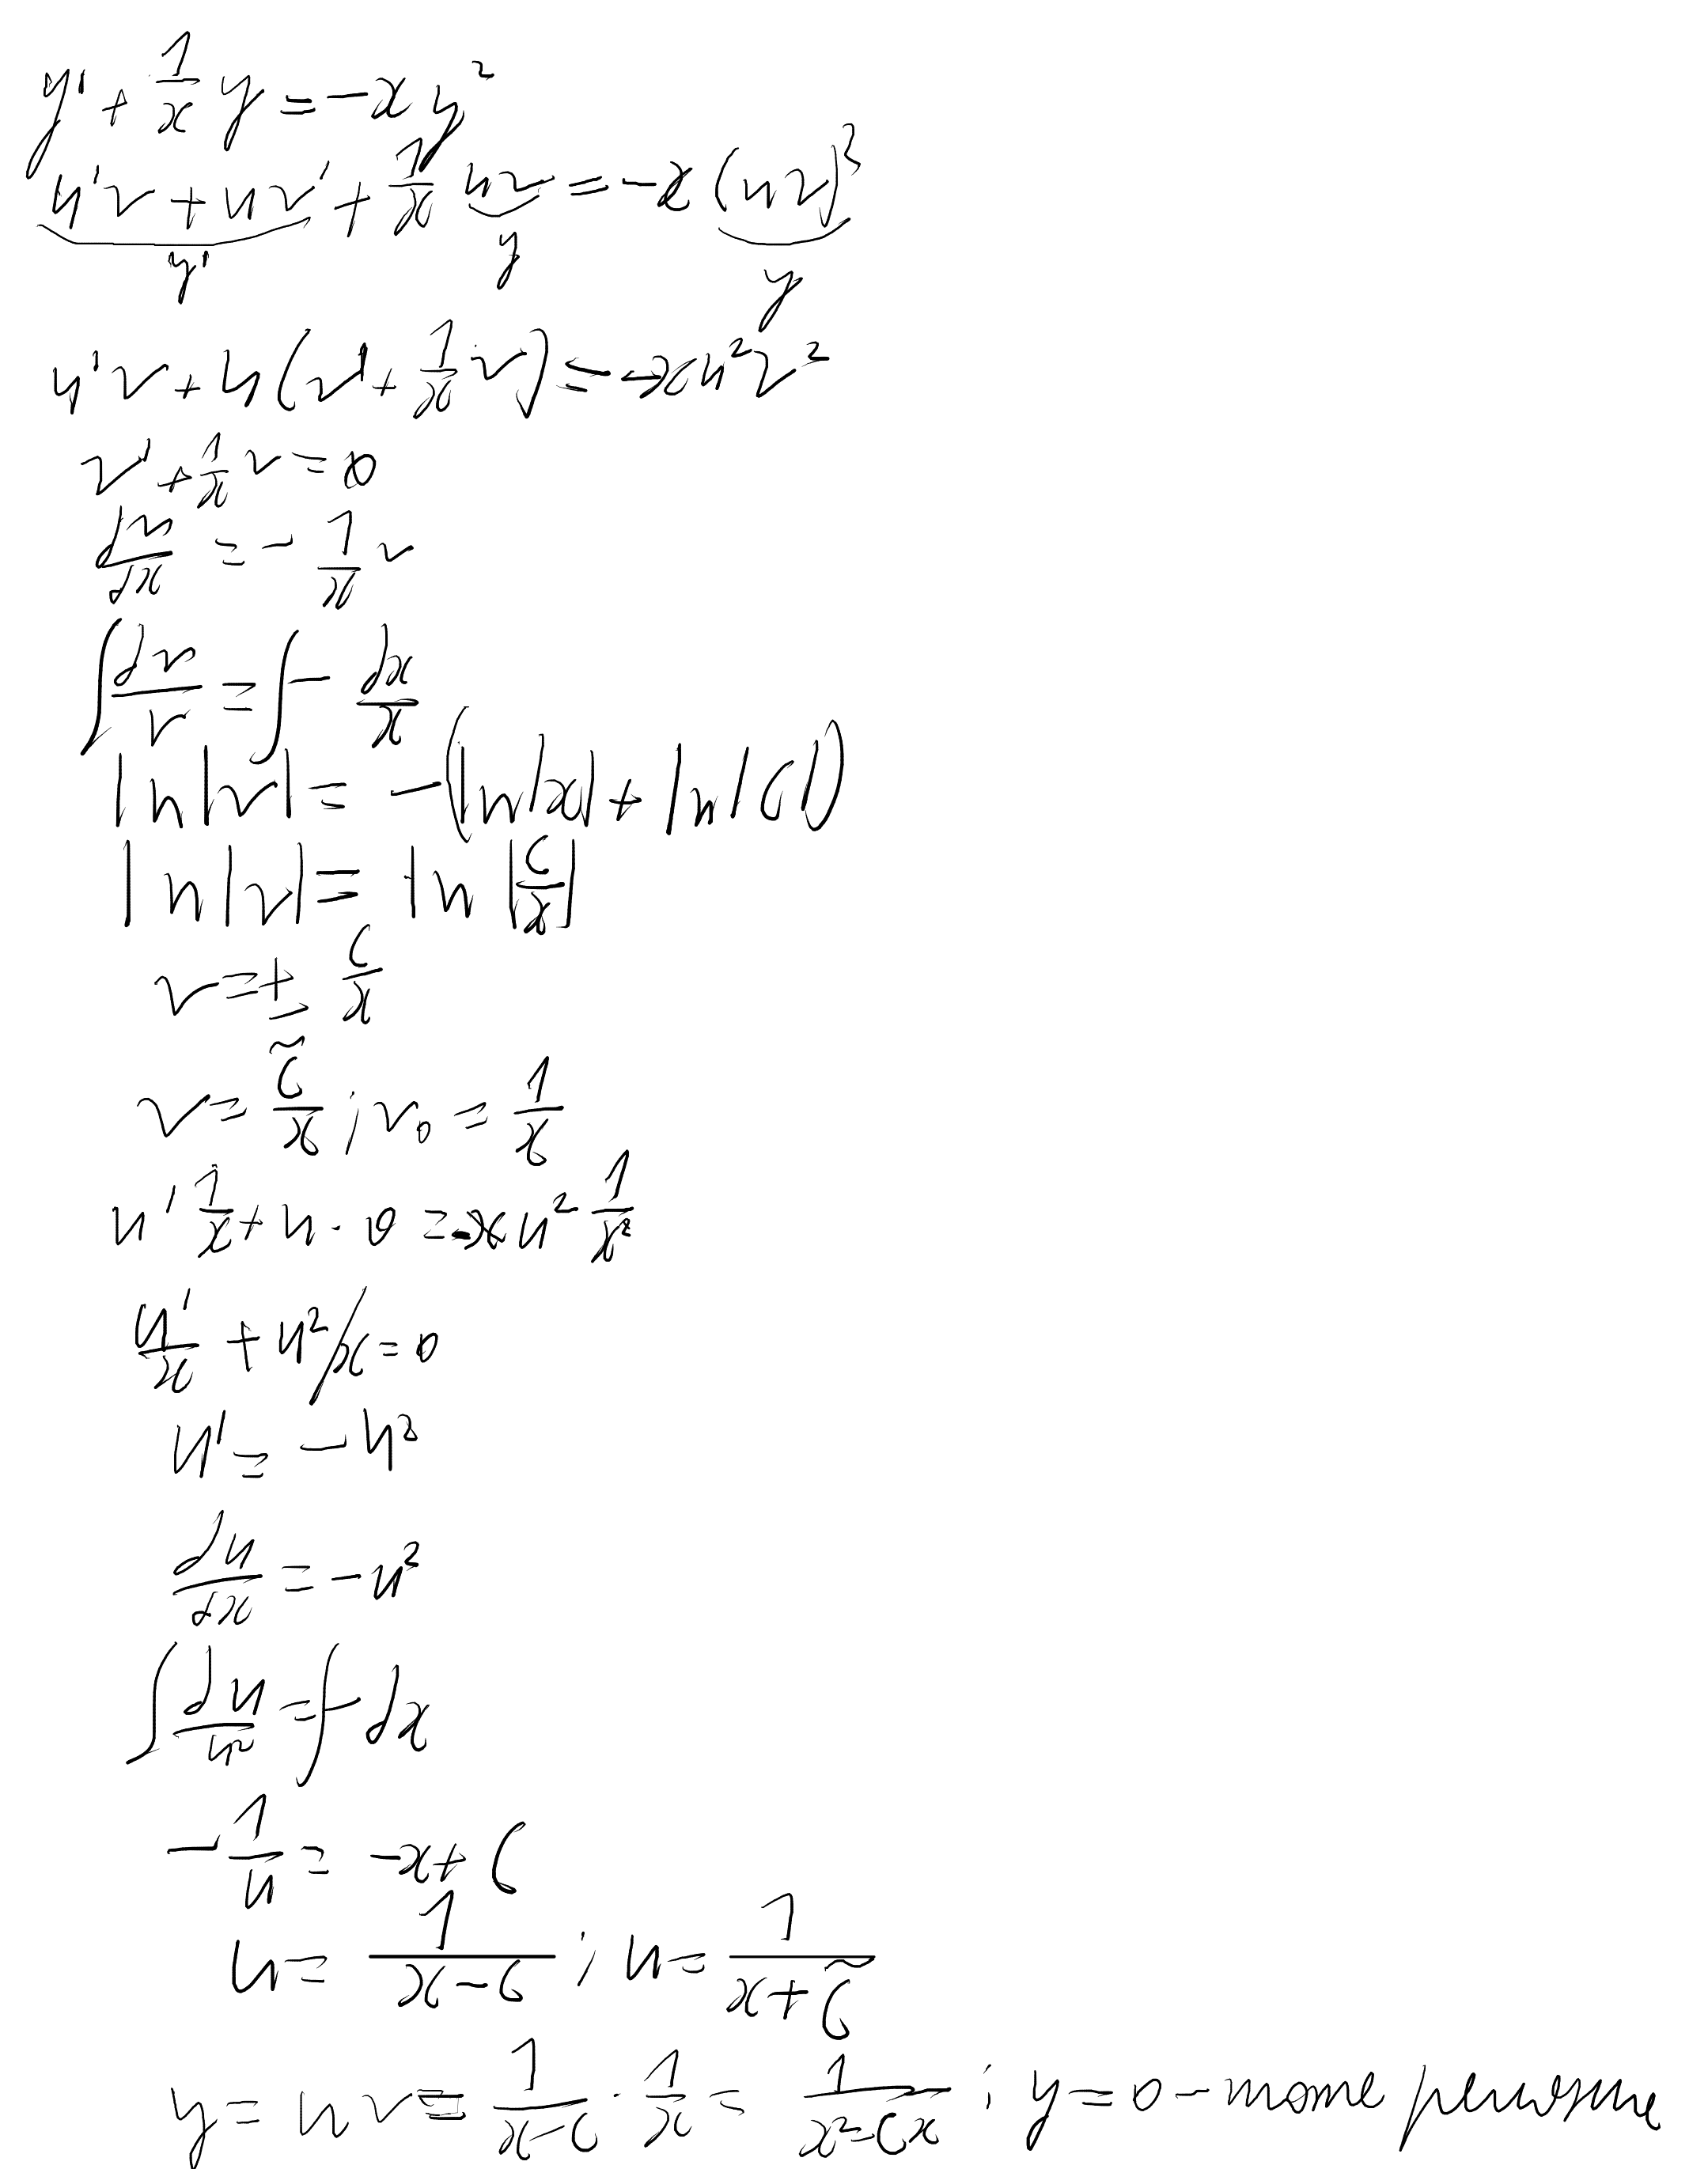 y' + 1/x y = -x y²
u'v + uv' + 1/x uv = -x (uv)²
y' y y
u'v + u(v' + 1/x v) = -x u² v²
v' + 1/x v = 0
dv/dx = - 1/x v
∫ dv/v = ∫ - dx/x
ln|v| = -(ln|x| + ln|C|)
ln|v| = ln|C/x|
v = ± C/x
v = C̃/x ; v₀ = 1/x
u' 1/x + u · 0 = -x u² 1/x²
u'/x + u²/x = 0
u' = - u²
du/dx = - u²
∫ du/u² = ∫ - dx
- 1/u = -x + C
u = 1/(x - C) ; u = 1/(x + C̃)
y = uv = 1/(x - C) · 1/x = 1/(x² - Cx) ; y = 0 - тоже решение